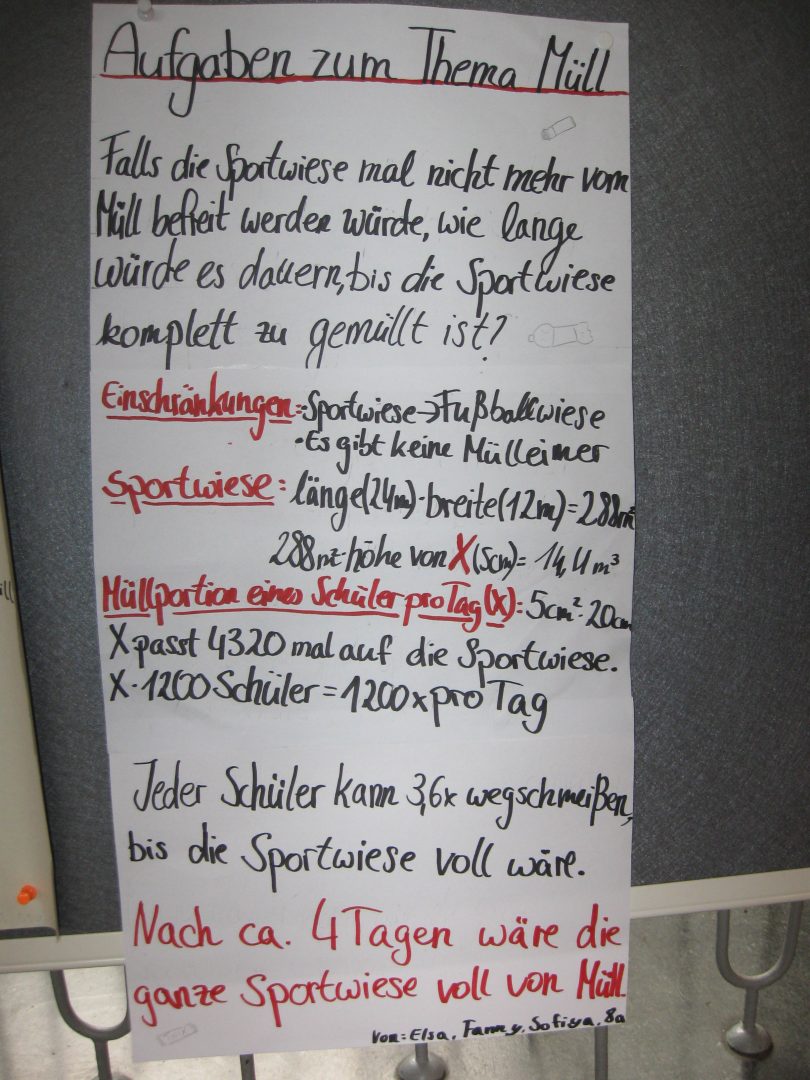 Aufgaben zum Thema Müll
Falls die Sportwiese mal nicht mehr vom
Müll befreit werden würde, wie lange
würde es dauern, bis die Sportwiese
komplett zu gemüllt ist?
Einschränkungen: ·Sportwiese→Fußballwiese
·Es gibt keine Mülleimer
Sportwiese: länge(24m)·breite(12m)=288m²
288m²·höhe von X(5cm)= 14,4m³
Müllportion eines Schüler pro Tag(X): 5cm²·20cm
X passt 4320 mal auf die Sportwiese.
X·1200 Schüler=1200x pro Tag
Jeder Schüler kann 3,6x wegschmeißen,
bis die Sportwiese voll wäre.
Nach ca. 4 Tagen wäre die
ganze Sportwiese voll von Müll.
Von: Elsa, Fanny, Sofiya, 8a